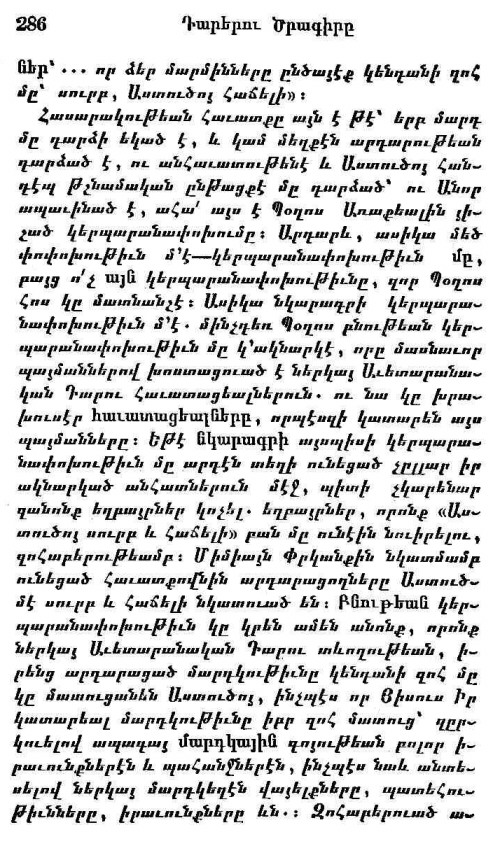 286 Դարերու Ծրագիրը
ներ՝ ... որ ձեր մարմինները ընծայէք կենդանի զոհ
մը՝ սուրբ, Աստուծոյ հաճելի»։
Հասարակութեան հաւատքը այն է թէ՝ երբ մարդ
մը դարձի եկած է, և կամ մեղքէն արդարութեան
դարձած է, ու անհաւատութենէ և Աստուծոյ հան-
դէպ թշնամական ընթացքէ մը դարձած՝ ու Անոր
ապաւինած է, ահա՛ այս է Պօղոս Առաքեալին յի-
շած կերպարանափոխումը։ Արդարև, ասիկա մեծ
փոփոխութիւն մ՚է—կերպարանափոխութիւն մը,
բայց ո՛չ այն կերպարանափոխութիւնը, զոր Պօղոս
հոս կը մատնանշէ։ Ասիկա նկարագրի կերպարա-
նափոխութիւն մ՚է. մինչդեռ Պօղոս բնութեան կեր-
պարանափոխութիւն մը կ՚ակնարկէ, որը մասնաւոր
պայմաններով խոստացուած է ներկայ Աւետարանա-
կան Դարու հաւատացեալներուն. ու նա կը խրա-
խուսէր հաւատացեալները, որպէսզի կատարեն այս
պայմանները։ Եթէ նկարագրի այսպիսի կերպարա-
նափոխութիւն մը արդէն տեղի ունեցած չըլլար իր
ակնարկած անհատներուն մէջ, պիտի չկարենար
զանոնք եղբայրներ կոչել. եղբայրներ, որոնք «Աս-
տուծոյ սուրբ և հաճելի» բան մը ունէին նուիրելու,
զոհաբերութեամբ։ Միմիայն Փրկանքին նկատմամբ
ունեցած հաւատքովնին արդարացողները Աստուծ-
մէ սուրբ և հաճելի նկատուած են։ Բնութեան կեր-
պարանափոխութիւն կը կրեն ամեն անոնք, որոնք
ներկայ Աւետարանական Դարու տևողութեան, ի-
րենց արդարացած մարդկութիւնը կենդանի զոհ մը
կը մատուցանեն Աստուծոյ, ինչպէս որ Յիսուս Իր
կատարեալ մարդկութիւնը իբր զոհ մատուց՝ զըր-
կուելով ապագայ մարդկային գոյութեան բոլոր ի-
րաւունքներէն և պահանջներէն, ինչպէս նաև անտե-
սելով ներկայ մարդկեղէն վայելքները, պատեհու-
թիւնները, իրաւունքները ևն.։ Զոհաբերուած ա-